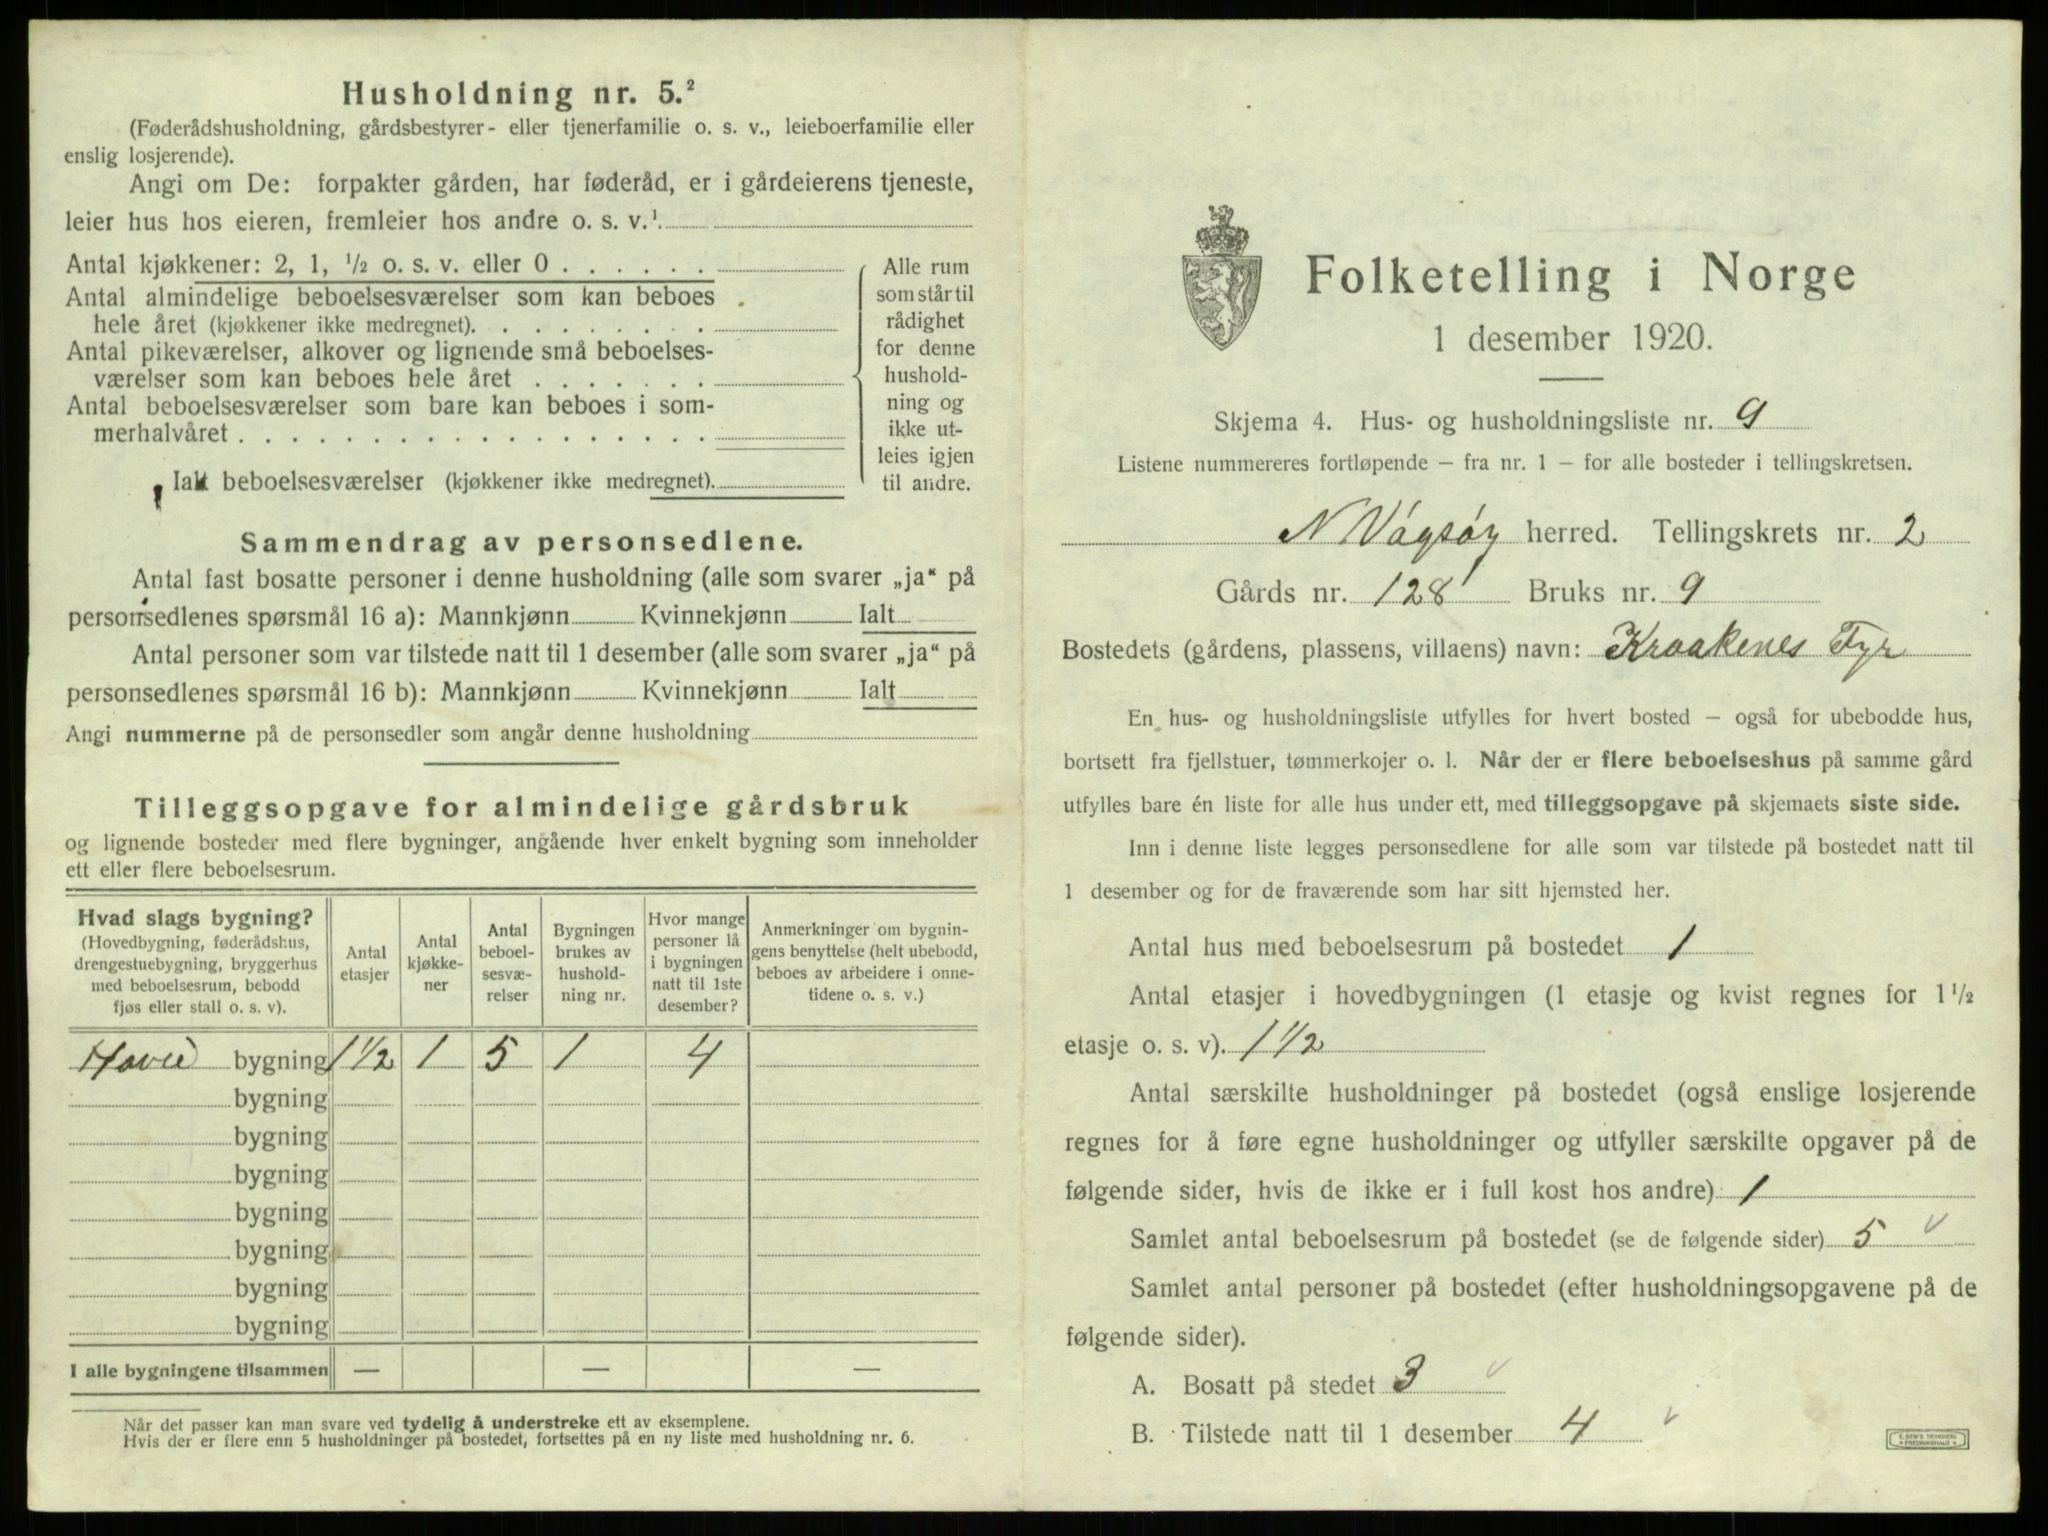 Husholdning nr. 5.²
(Føderådshusholdning, gårdsbestyrer- eller tjenerfamilie o. s. v., leieboerfamilie eller
enslig losjerende).
Angi om De: forpakter gården, har føderåd, er i gårdeierens tjeneste,
leier hus hos eieren, fremleier hos andre o. s. v.¹
Antal kjøkkener: 2, 1, ½ o. s. v. eller 0 . . . . . .
Antal almindelige beboelsesværelser som kan beboes
hele året (kjøkkener ikke medregnet). . . . . . . . .
Antal pikeværelser, alkover og lignende små beboelses-
værelser som kan beboes hele året . . . . . . .
Antal beboelsesværelser som bare kan beboes i som-
merhalvåret . . . . . . . . . . . . . . . . . .
Ialt beboelsesværelser (kjøkkener ikke medregnet).
Alle rum
som står til
rådighet
for denne
hushold-
ning og
ikke ut-
leies igjen
til andre.
Sammendrag av personsedlene.
Antal fast bosatte personer i denne husholdning (alle som svarer „ja“ på
personsedlenes spørsmål 16 a): Mannkjønn Kvinnekjønn Ialt
Antal personer som var tilstede natt til 1 desember (alle som svarer „ja“ på
personsedlenes spørsmål 16 b): Mannkjønn Kvinnekjønn Ialt
Angi nummerne på de personsedler som angår denne husholdning
Tilleggsopgave for almindelige gårdsbruk
og lignende bosteder med flere bygninger, angående hver enkelt bygning som inneholder
ett eller flere beboelsesrum.
Hvad slags bygning?
(Hovedbygning, føderådshus,
drengestuebygning, bryggerhus
med beboelsesrum, bebodd
fjøs eller stall o. s. v).
Antal
etasjer
Antal
kjøkke-
ner
Antal
beboel-
sesvæ-
relser
Bygningen
brukes av
hushold-
ning nr.
Hvor mange
personer lå
i bygningen
natt til 1ste
desember?
Anmerkninger om bygnin-
gens benyttelse (helt ubebodd,
beboes av arbeidere i onne-
tidene o. s. v.)
bygning 1½ 1 5 1 4
bygning
bygning
bygning
bygning
bygning
bygning
bygning
I alle bygningene tilsammen — — —
Når det passer kan man svare ved tydelig å understreke ett av eksemplene.
Hvis der er flere enn 5 husholdninger på bostedet, fortsettes på en ny liste med husholdning nr. 6.
Folketelling i Norge
1 desember 1920.
Skjema 4. Hus- og husholdningsliste nr. 9
Listene nummereres fortløpende — fra nr. 1 — for alle bosteder i tellingskretsen.
N Vågsøy herred. Tellingskrets nr. 2
Gårds nr. 128 Bruks nr. 9
Bostedets (gårdens, plassens, villaens) navn: Kraakenes Fyr
En hus- og husholdningsliste utfylles for hvert bosted — også for ubebodde hus,
bortsett fra fjellstuer, tømmerkojer o. l. Når der er flere beboelseshus på samme gård
utfylles bare én liste for alle hus under ett, med tilleggsopgave på skjemaets siste side.
Inn i denne liste legges personsedlene for alle som var tilstede på bostedet natt til
1 desember og for de fraværende som har sitt hjemsted her.
Antal hus med beboelsesrum på bostedet 1
Antal etasjer i hovedbygningen (1 etasje og kvist regnes for 1½
etasje o. s. v). 1½
Antal særskilte husholdninger på bostedet (også enslige losjerende
regnes for å føre egne husholdninger og utfyller særskilte opgaver på de
følgende sider, hvis de ikke er i full kost hos andre) 1
Samlet antal beboelsesrum på bostedet (se de følgende sider) 5
Samlet antal personer på bostedet (efter husholdningsopgavene på de
følgende sider).
A. Bosatt på stedet 3
B. Tilstede natt til 1 desember 4